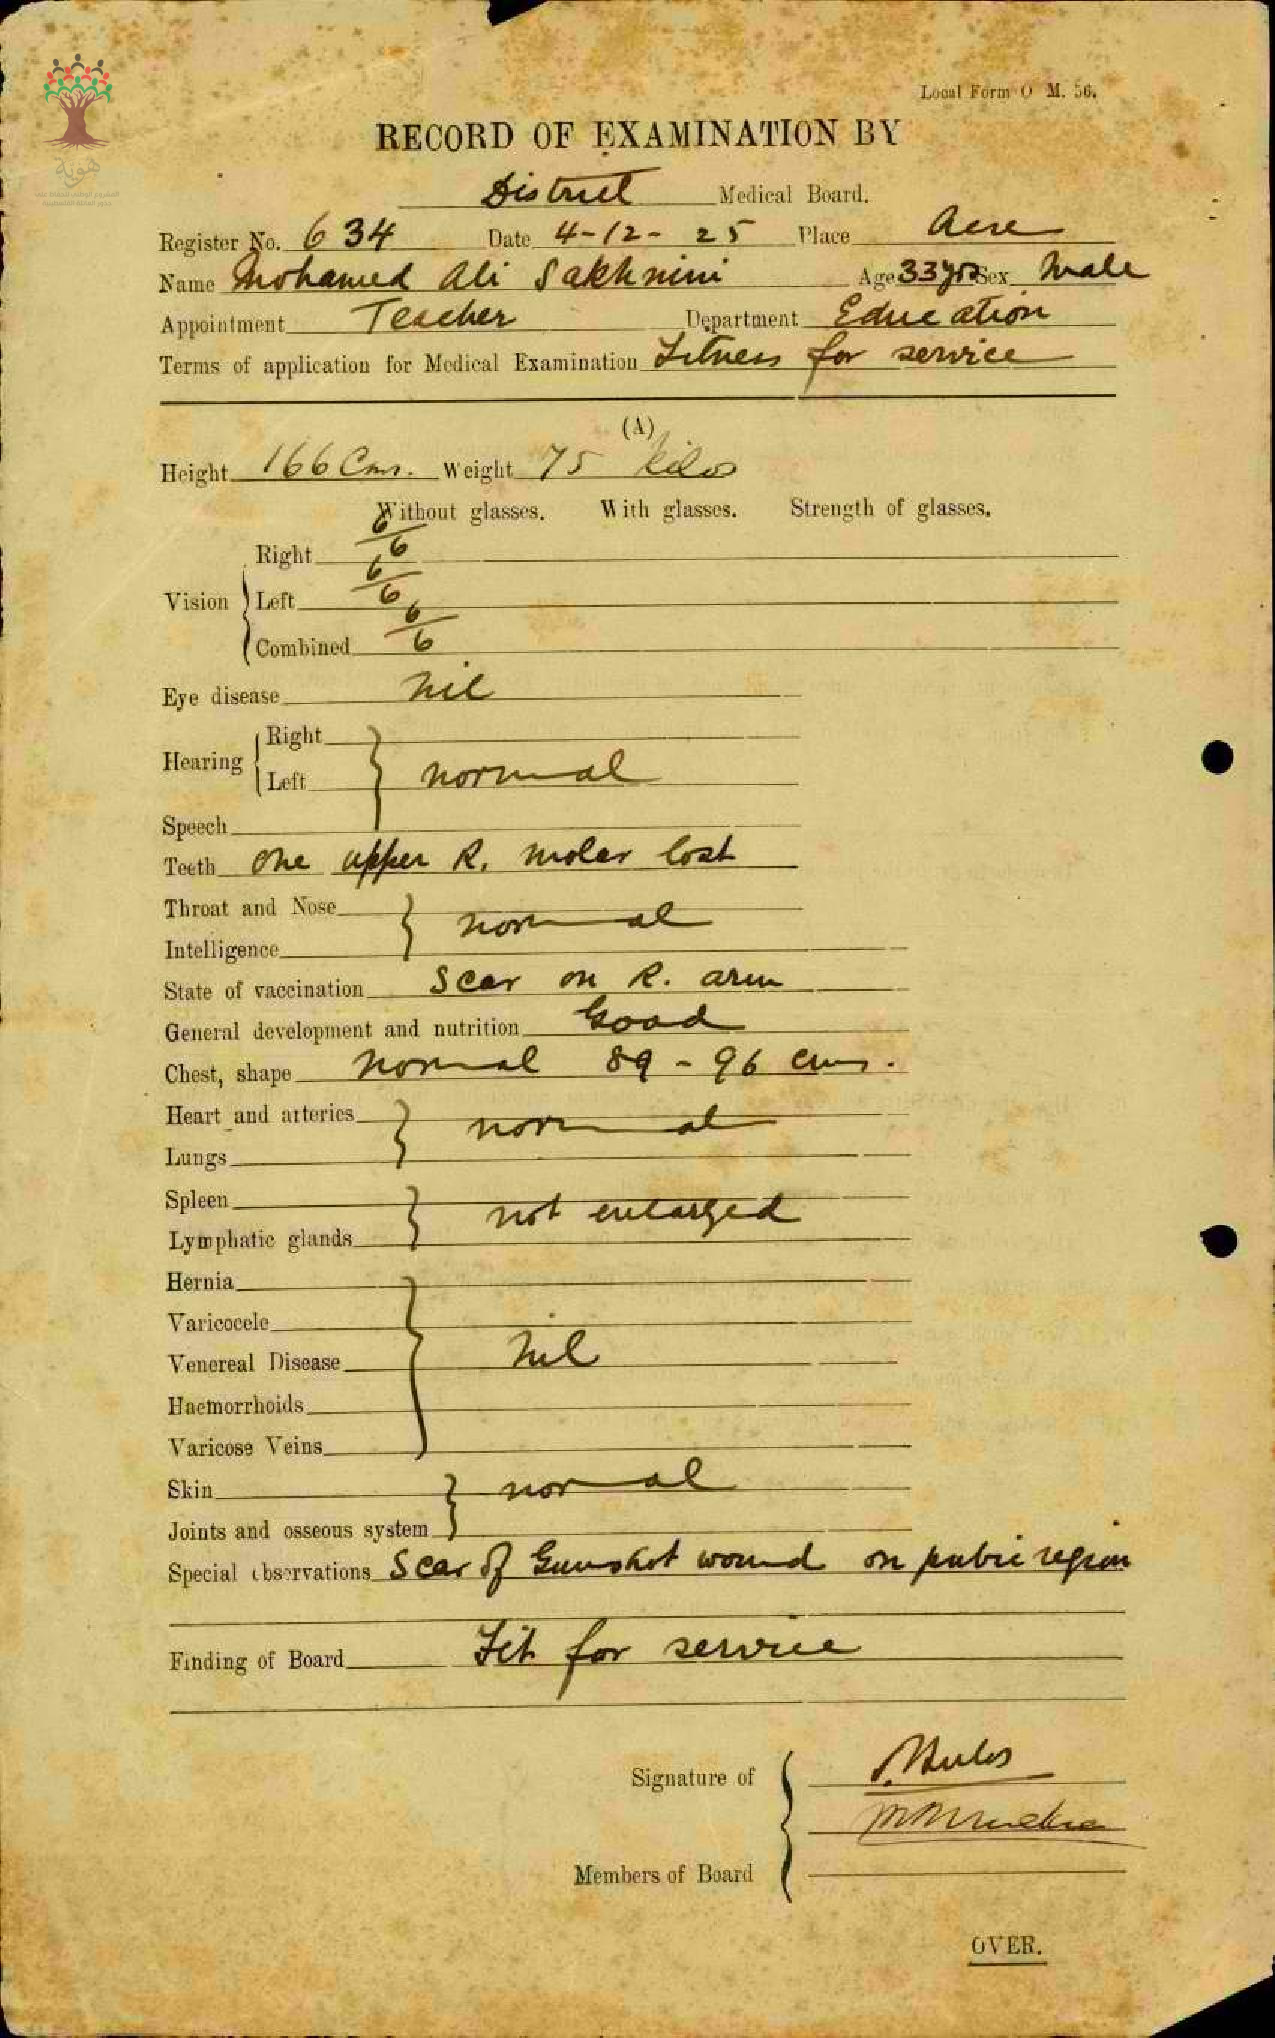 هوية
Local Form O M. 56.
RECORD OF EXAMINATION BY
District Medical Board.
Register No. 634 Date 4-12-25 Place Acre
Name Mohamed Ali Sakhnini Age 33 yrs Sex Male
Appointment Teacher Department Education
Terms of application for Medical Examination Fitness for service
(A)
Height 166 Cms. Weight 75 kilos
Without glasses. With glasses. Strength of glasses.
Right 6/6
Vision Left 6/6
Combined 6/6
Eye disease nil
Right
Hearing normal
Left
Speech
Teeth one upper R. molar lost
Throat and Nose
normal
Intelligence
State of vaccination Scar on R. arm
General development and nutrition Good
Chest, shape normal 89 - 96 cms.
Heart and arteries
normal
Lungs
Spleen
not enlarged
Lymphatic glands
Hernia
Varicocele
Venereal Disease nil
Haemorrhoids
Varicose Veins
Skin normal
Joints and osseous system
Special observations Scar of Gunshot wound on pubic region
Finding of Board Fit for service
Signature of
Members of Board
OVER.